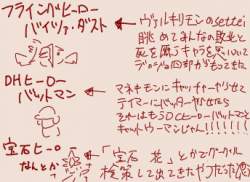 フライングヒーロー
バイツァ・ダスト
ヴァルキリモンのsettei
眺めてみんなの
死を キャラを思いついて
四部がもってきた
DHヒーロー
バットマン
マネキモンにキャッチャーやらせて
テイマーにバッターやらせたら
それはもうDCヒーローバットマン
キャットウーマンじゃん!!!!!!
宝石ヒーロー
なんとか
「宝石 花」とかでグーグル
検索して出てきたやつだった